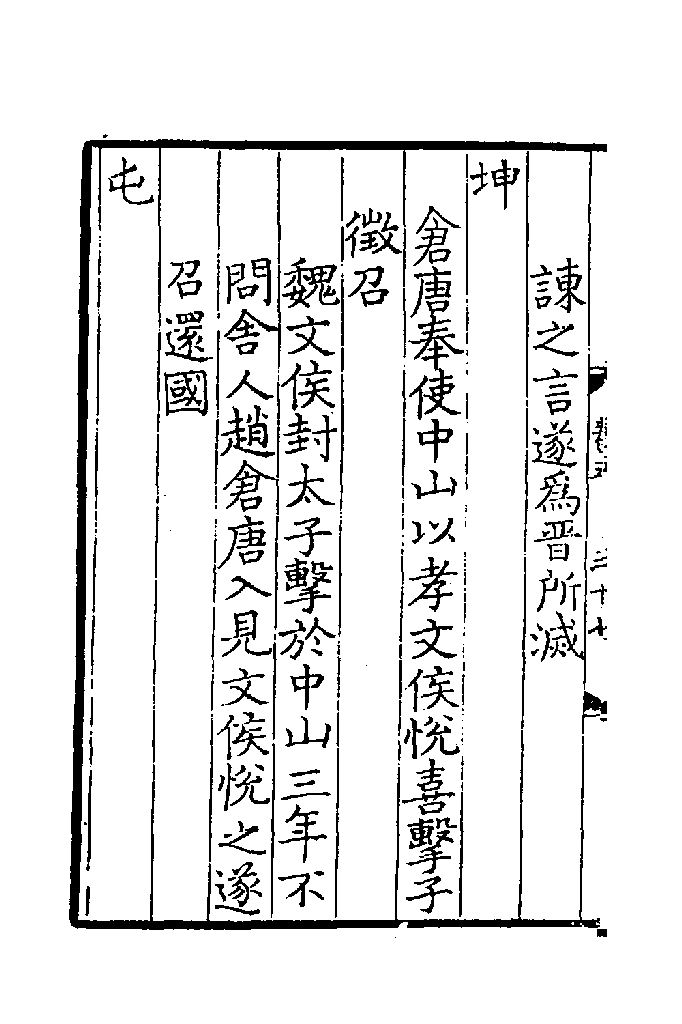 諌之言遂爲晋所滅
坤
倉唐奉使中山以孝文侯悅喜擊子
徵召
魏文侯封太子擊於中山三年不
問舎人趙倉唐入見文侯悅之遂
召還國
屯